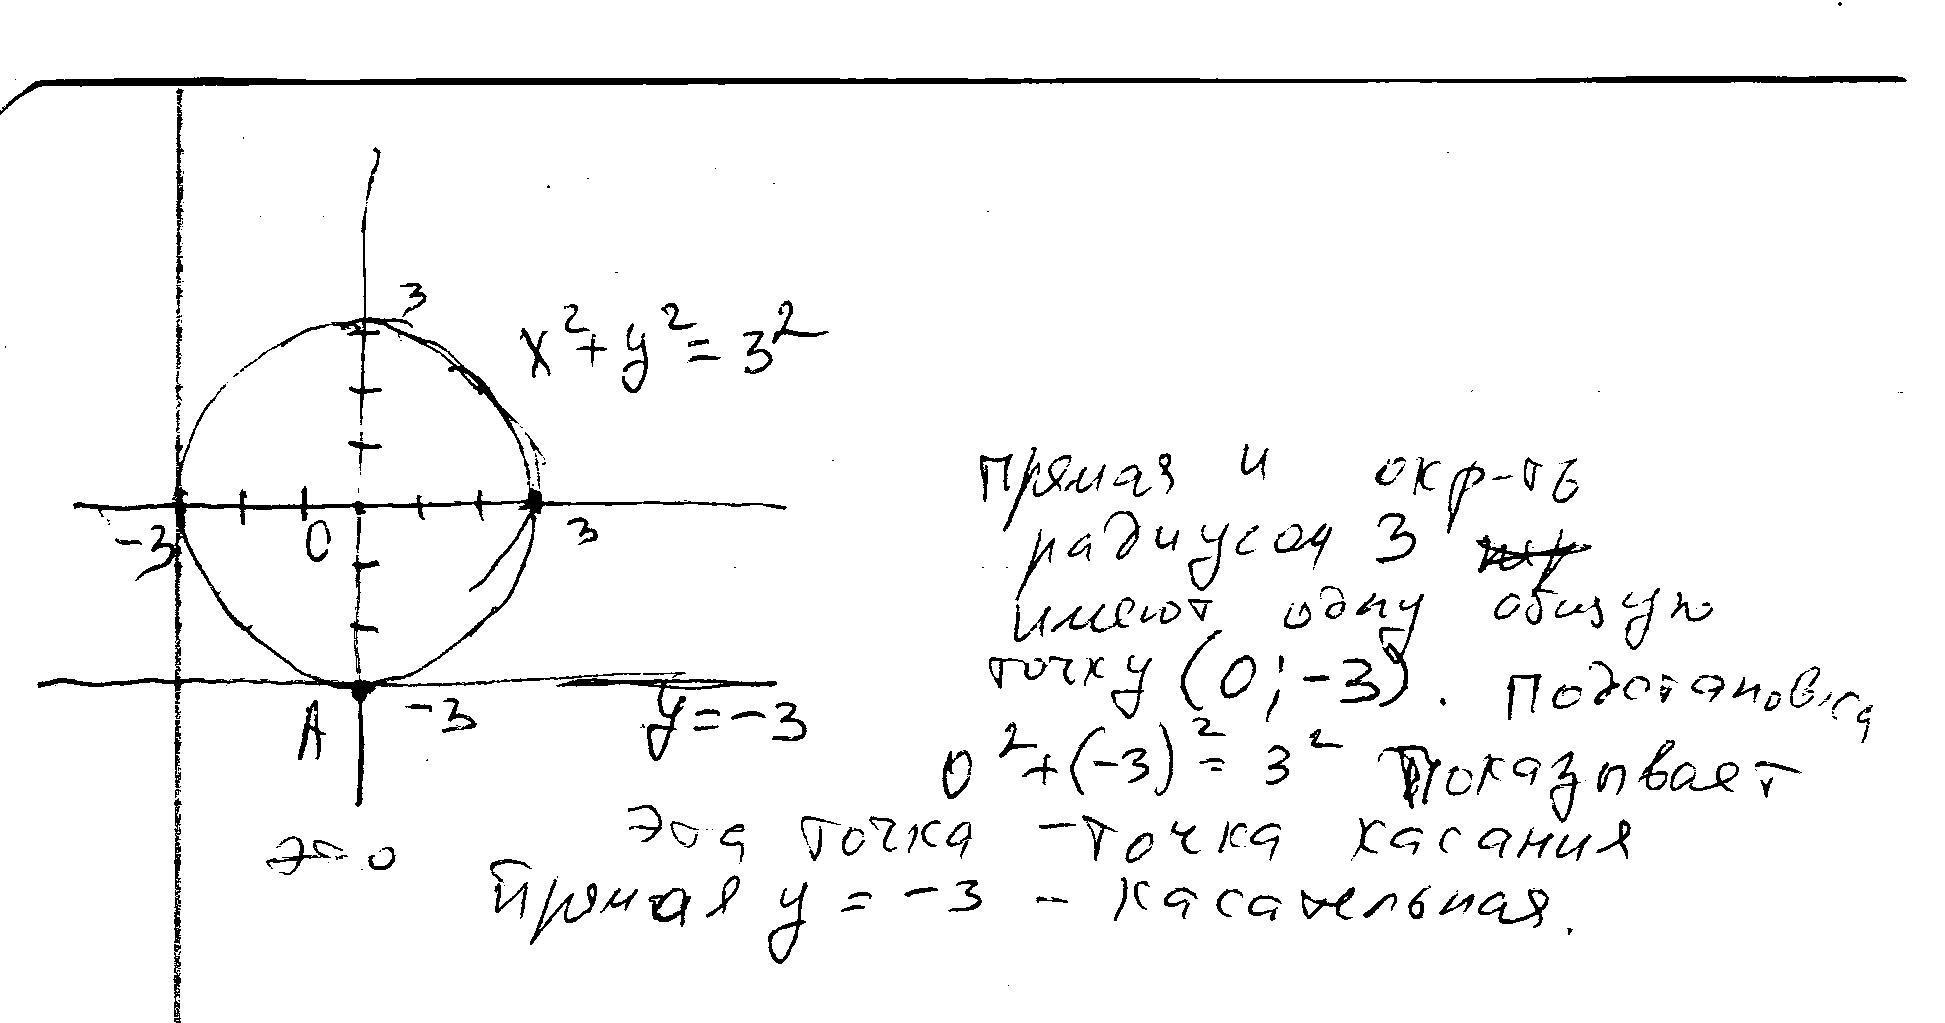 3
x²+y²=3²
-3
0
3
A
-3
y=-3
прямая и окр-ть
радиусом 3
имеют одну общую
точку (0;-3). Подстановка
0²+(-3)²=3² показывает
эта точка - точка касания
прямая y = -3 - касательная.